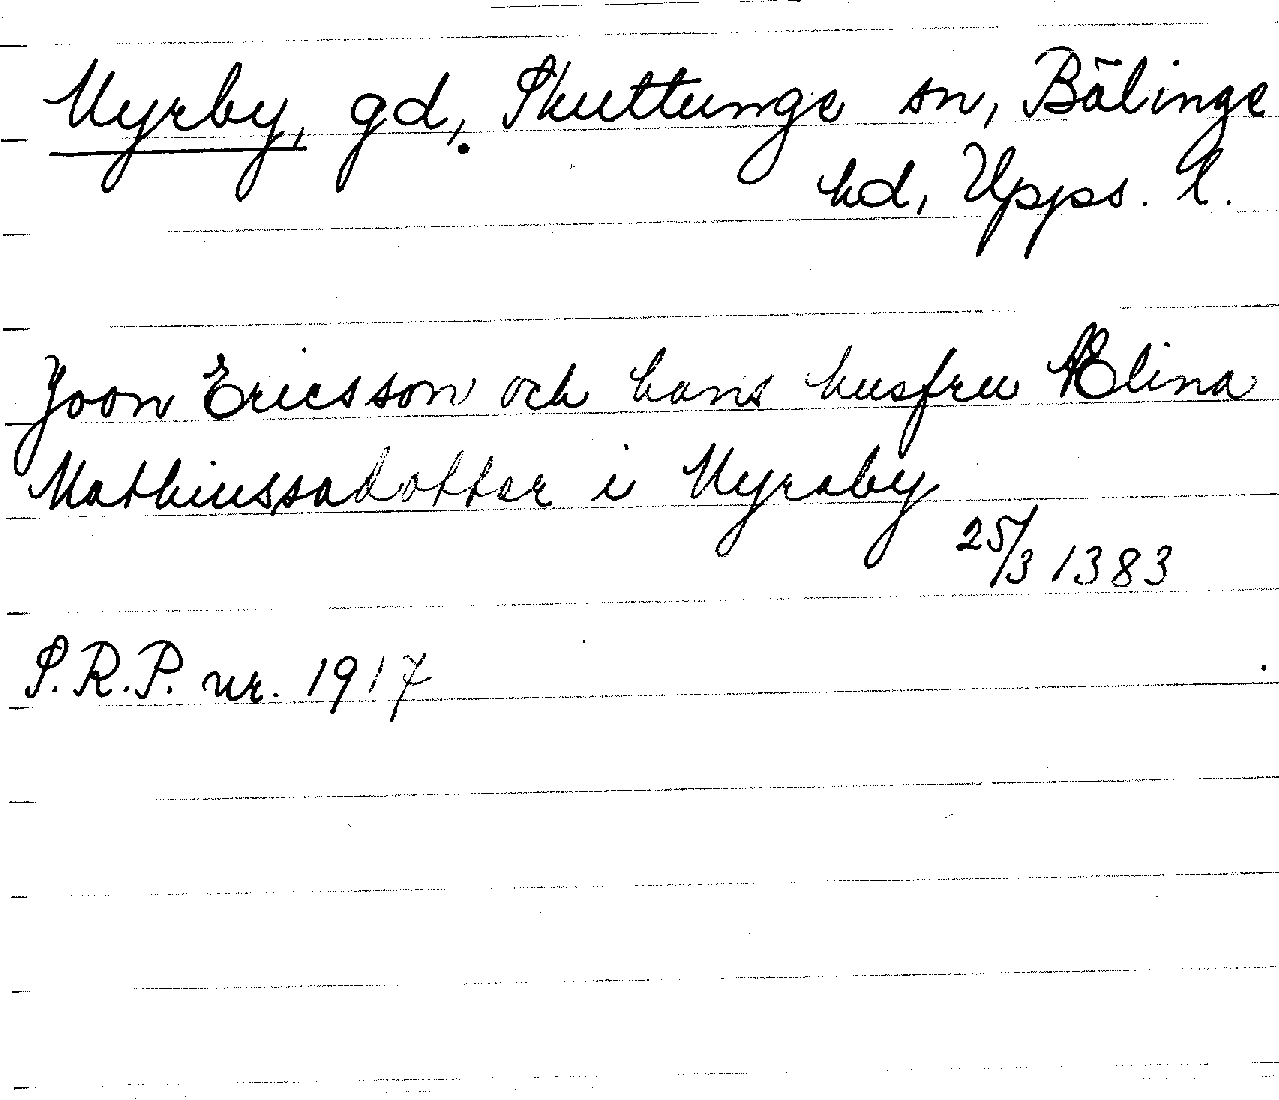 Myrby, gd, Skuttunge sn, Bälinge
hd, Upps. l.
Joon Ericsson och hans husfru Ælina
Mathiussadotter i Myraby
25/3 1383
S.R.P. nr. 1917